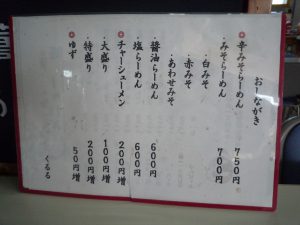 おーながき
辛みそらーめん 750円
みそらーめん 700円
・白みそ
・赤みそ
・あわせみそ
醤油らーめん 600円
塩らーめん 600円
チャーシューメン 200円増
・大盛り 100円増
・特盛り 200円増
ゆず 50円増
くるる